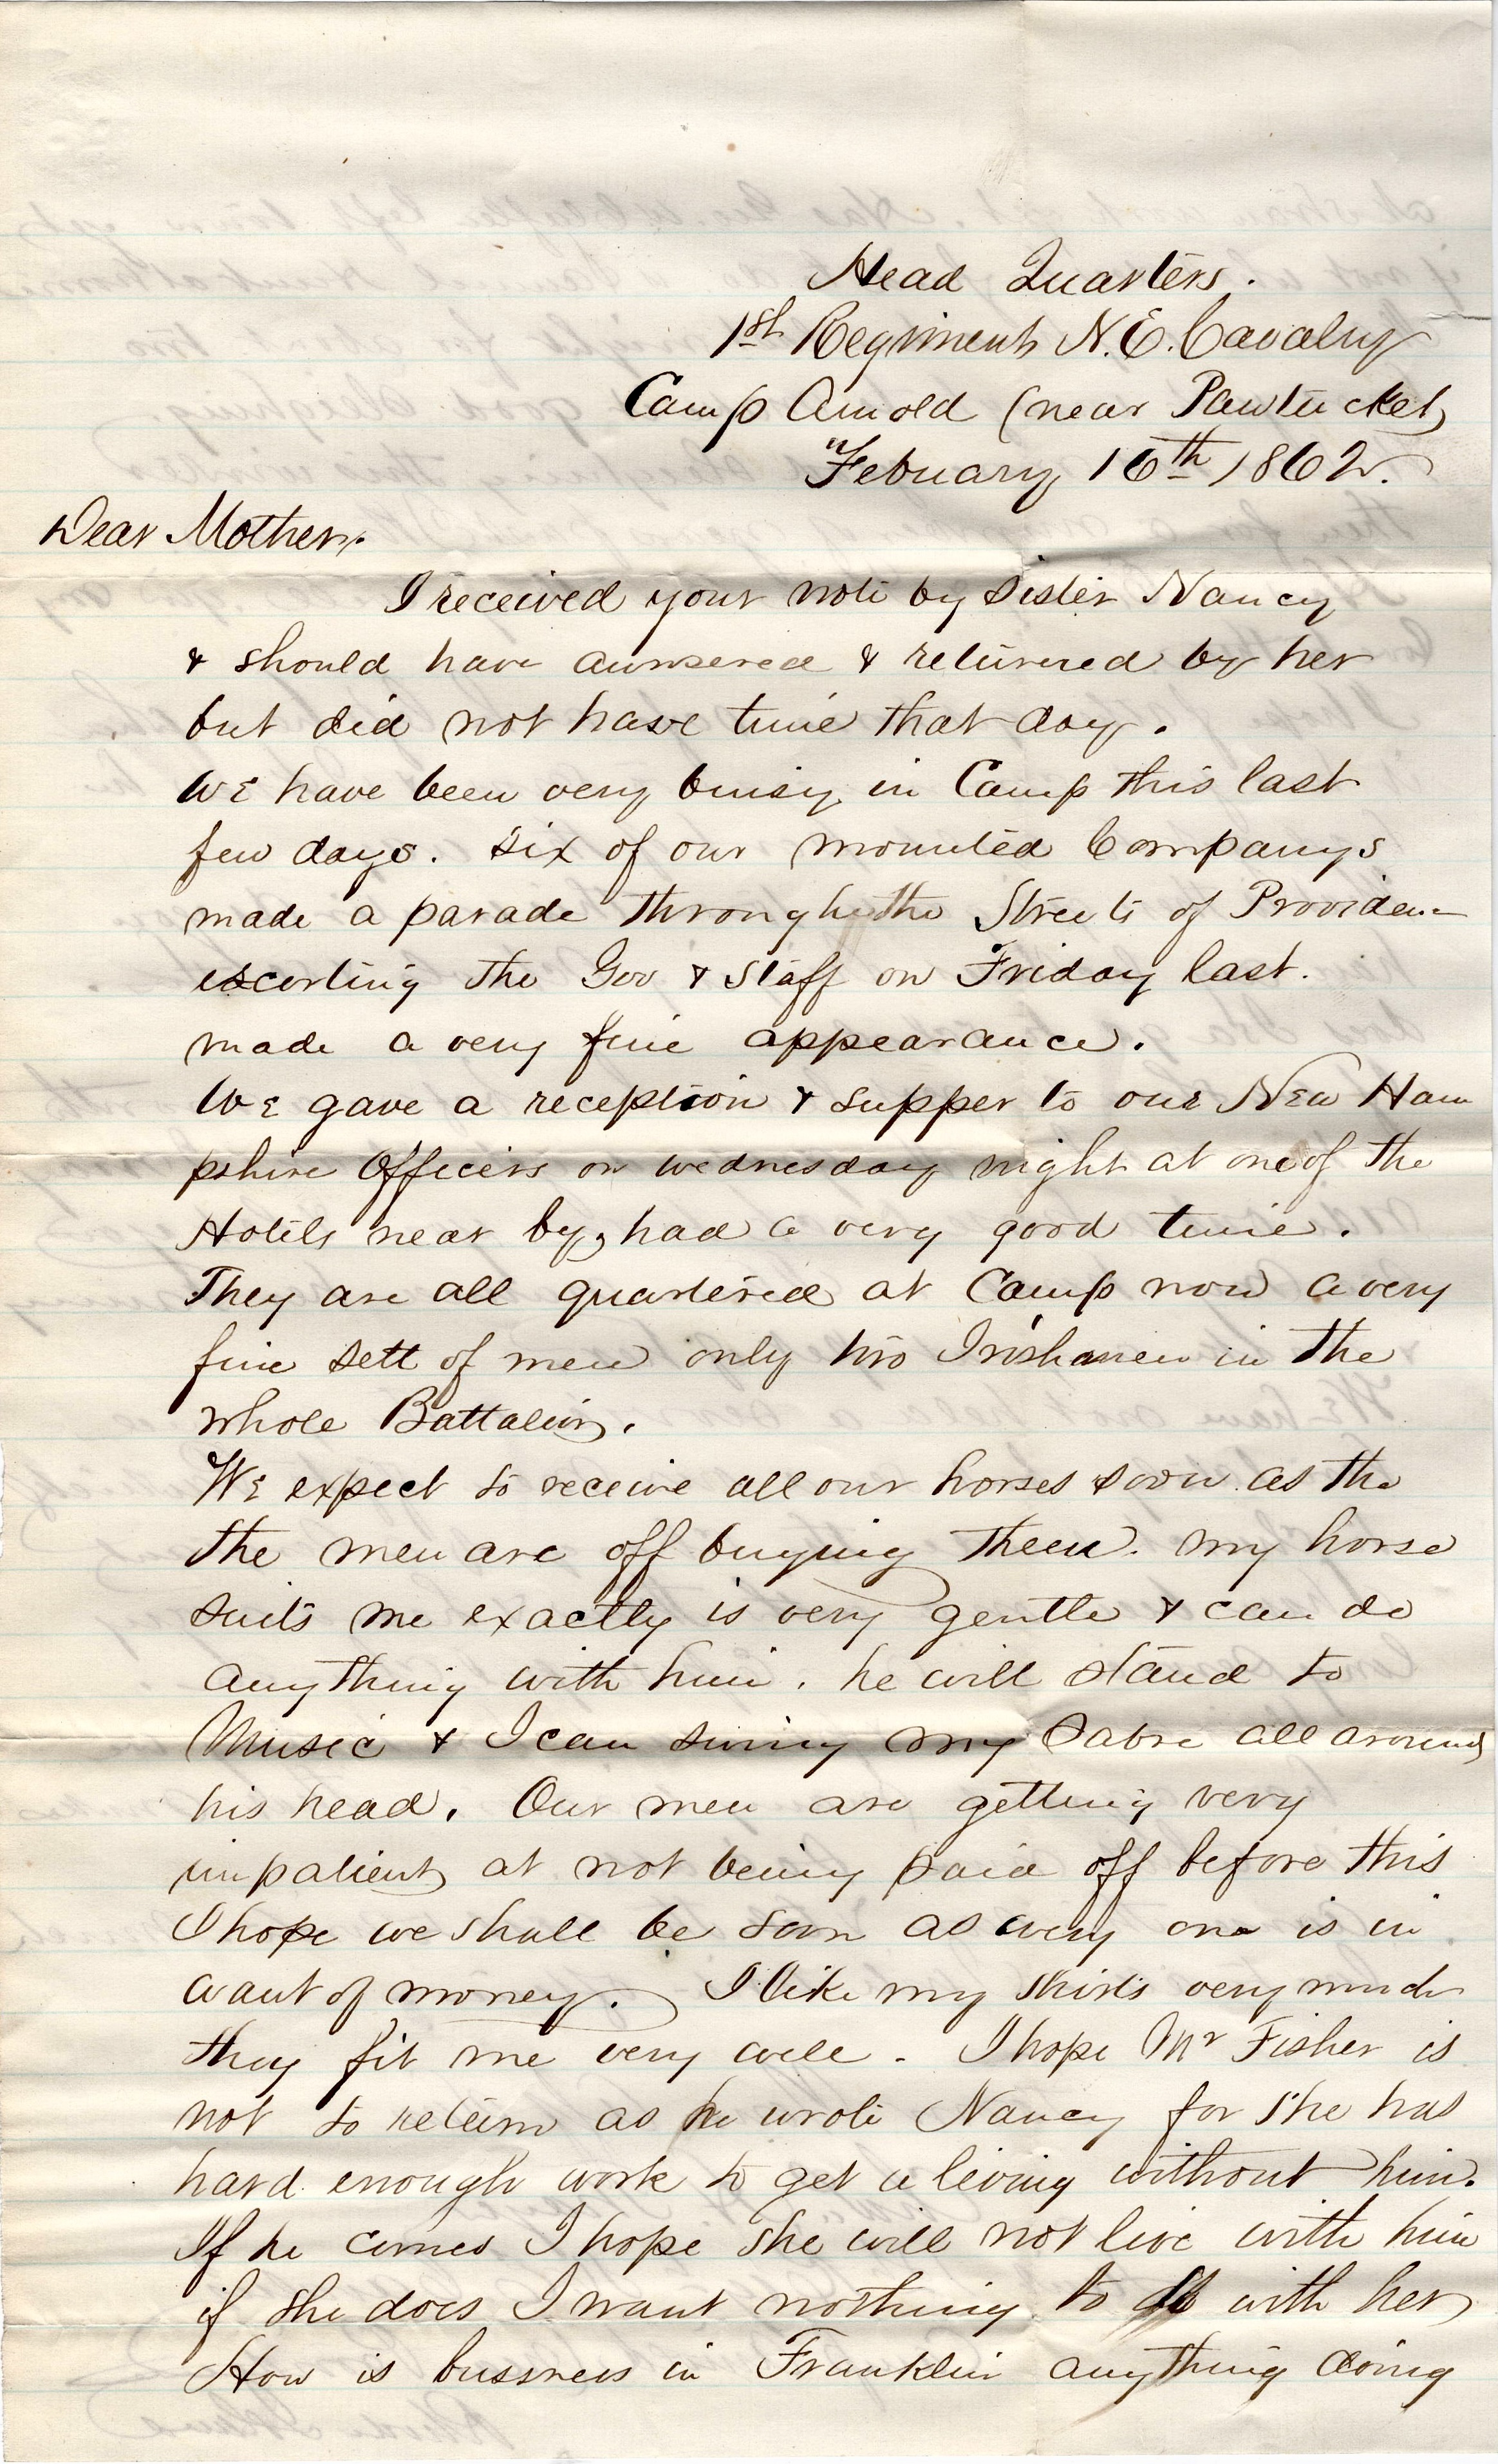 Head Quarters.
1st Regiment N.E. Cavalry
Camp Arnold (near Pawtucket)
Febuary 16th 1862.
Dear Mother.
I received your note by Sister Nancy
& should have answered & returned by her
but did not have time that day.
We have been very buisy in Camp this last
few days. Six of our mounted Companys
made a parade through the Streets of Providence
escorting the Gov & Staff on Friday last.
made a very fine appearance.
We gave a reception & supper to our New Ham
pshire Officers on wednesday night at one of the
Hotels near by, had a very good time.
They are all quartered at Camp now a very
fine sett of men only two Irishmen in the
whole Battalion.
We expect to receive all our horses soon as the
the men are off buying them. my horse
suits me exactly is very gentle & can do
anything with him. he will stand to
Music & I can swing my Sabre all around
his head. Our men are getting very
impatient at not being paid off before this
I hope we shall be soon as every one is in
want of money. I like my shirts very much
they fit me very well. I hope Mr Fisher is
not to return as he wrote Nancy for she has
hard enough work to get a living without him.
If he comes I hope she will not live with him
if she does I want nothing to do with her
How is bussness in Franklin anything doing